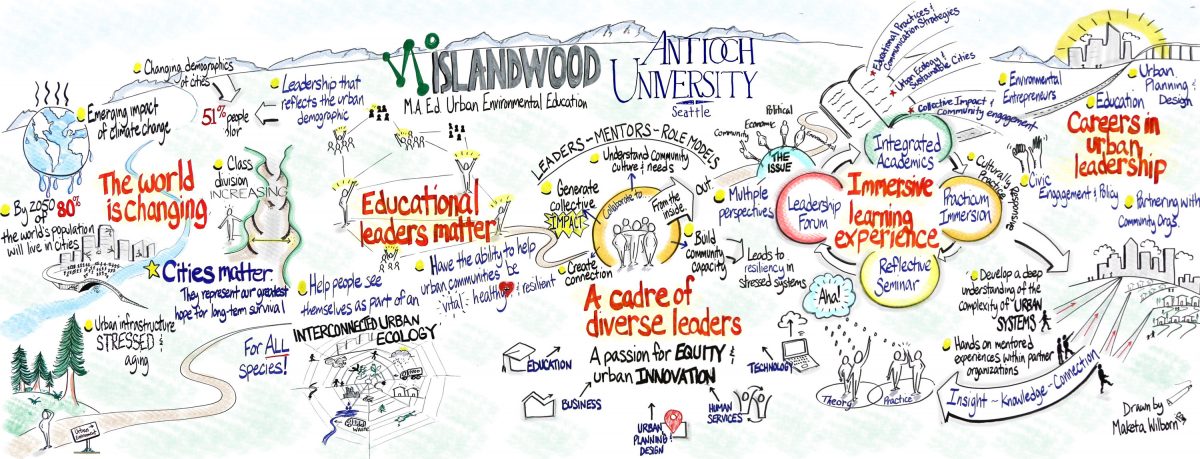 ISLANDWOOD
M.A Ed. Urban Environmental Education
ANTIOCH
UNIVERSITY
Seattle
Changing demographics
of cities
51%
people
Leadership that
reflects the urban
demographic
Emerging impact
of climate change
The world
is changing
By 2050 80%
of
the world's population
will live in cities
Class
division
INCREASING
Cities matter.
They represent our greatest
hope for long-term survival
Urban infrastructure
STRESSED &
aging
For ALL
species!
Educational
leaders matter
Help people see
themselves as part of an
INTERCONNECTED URBAN
ECOLOGY
Have the ability to help
urban communities be
vital, healthy & resilient
LEADERS-MENTORS-ROLE MODELS
Understand community
culture & needs
Generate
collective
IMPACT
Collaborate to...
From the
inside
OUT
Create
connection
Build
community
capacity
Leads to
resiliency in
stressed systems
A cadre of
diverse leaders
A passion for EQUITY &
urban INNOVATION
EDUCATION
BUSINESS
URBAN
PLANNING
DESIGN
HUMAN
SERVICES
TECHNOLOGY
Community
Economic
Political
THE
ISSUE
Multiple
perspectives
Educational Practices &
Communication Strategies
Urban Ecology &
Sustainable Cities
Collective Impact &
Community engagement
Integrated
Academics
Leadership
Forum
Immersive
learning
experience
Practicum
Immersion
Reflective
Seminar
Culturally
Responsive
Practice
Aha!
Theory
Practice
Environmental
Entrepreneurs
Urban
Planning &
Design
Education
Careers in
urban
leadership
Civic
Engagement & Policy
Partnering with
Community Orgs.
Develop a deep
understanding of the
complexity of "URBAN
SYSTEMS"
Hands on mentored
experiences within partner
organizations
Insight - Knowledge - Connection
Drawn by
Maketa Wilborn